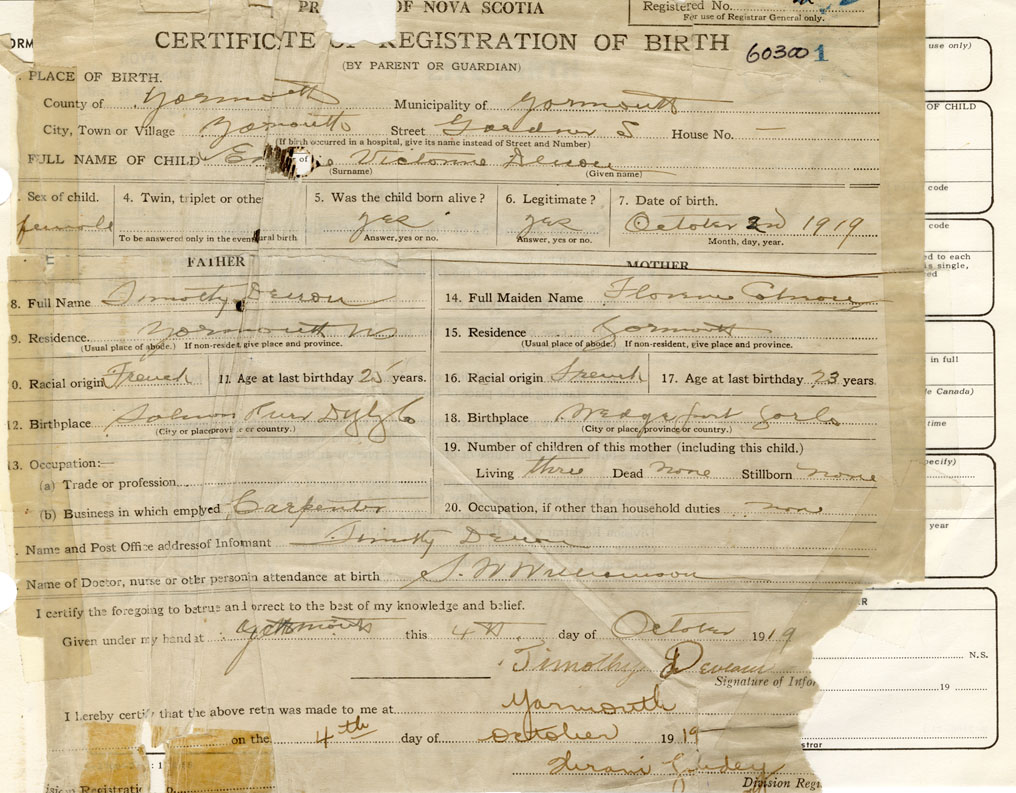 OF NOVA SCOTIA
Registered No.
For use of Registrar General only.
CERTIFICATE OF REGISTRATION OF BIRTH 60300 1
(BY PARENT OR GUARDIAN)
use only)
PLACE OF BIRTH.
County of Yarmouth Municipality of Yarmouth
OF CHILD
City, Town or Village Yarmouth Street Gardner S House No. —
(If birth occurred in a hospital, give its name instead of Street and Number)
FULL NAME OF CHILD Victorine
(Surname) (Given name)
code
Sex of child. 4. Twin, triplet or othe 5. Was the child born alive? 6. Legitimate? 7. Date of birth.
female yes yes October 2nd 1919
To be answered only in the even ural birth Answer, yes or no. Answer, yes or no. Month, day, year.
code
FATHER MOTHER
ed to each
is single,
ed
8. Full Name Timothy 14. Full Maiden Name Florence
9. Residence. Yarmouth NS 15. Residence Yarmouth
(Usual place of abode.) If non-resident, give place and province. (Usual place of abode.) If non-resident, give place and province.
in full
0. Racial origin French 11. Age at last birthday 25 years. 16. Racial origin French 17. Age at last birthday 23 years.
le Canada)
12. Birthplace Salmon River 18. Birthplace Wedgeport
(City or place province or country.) (City or place, province or country.)
time
19. Number of children of this mother (including this child.)
13. Occupation:—
Living three Dead none Stillborn none
pecify)
(a) Trade or profession
(b) Business in which emplyed Carpenter 20. Occupation, if other than household duties none
year
Name and Post Office address of Informant Timothy
Name of Doctor, nurse or other person in attendance at birth S. W Williamson
I certify the foregoing to be true and correct to the best of my knowledge and belief.
Given under my hand at Yarmouth this 4th day of October 1919
N.S.
Timothy Deveau
Signature of Infor
19
I hereby certify that the above retn was made to me at Yarmouth
on the 4th day of October 1919
strar
Division Reg